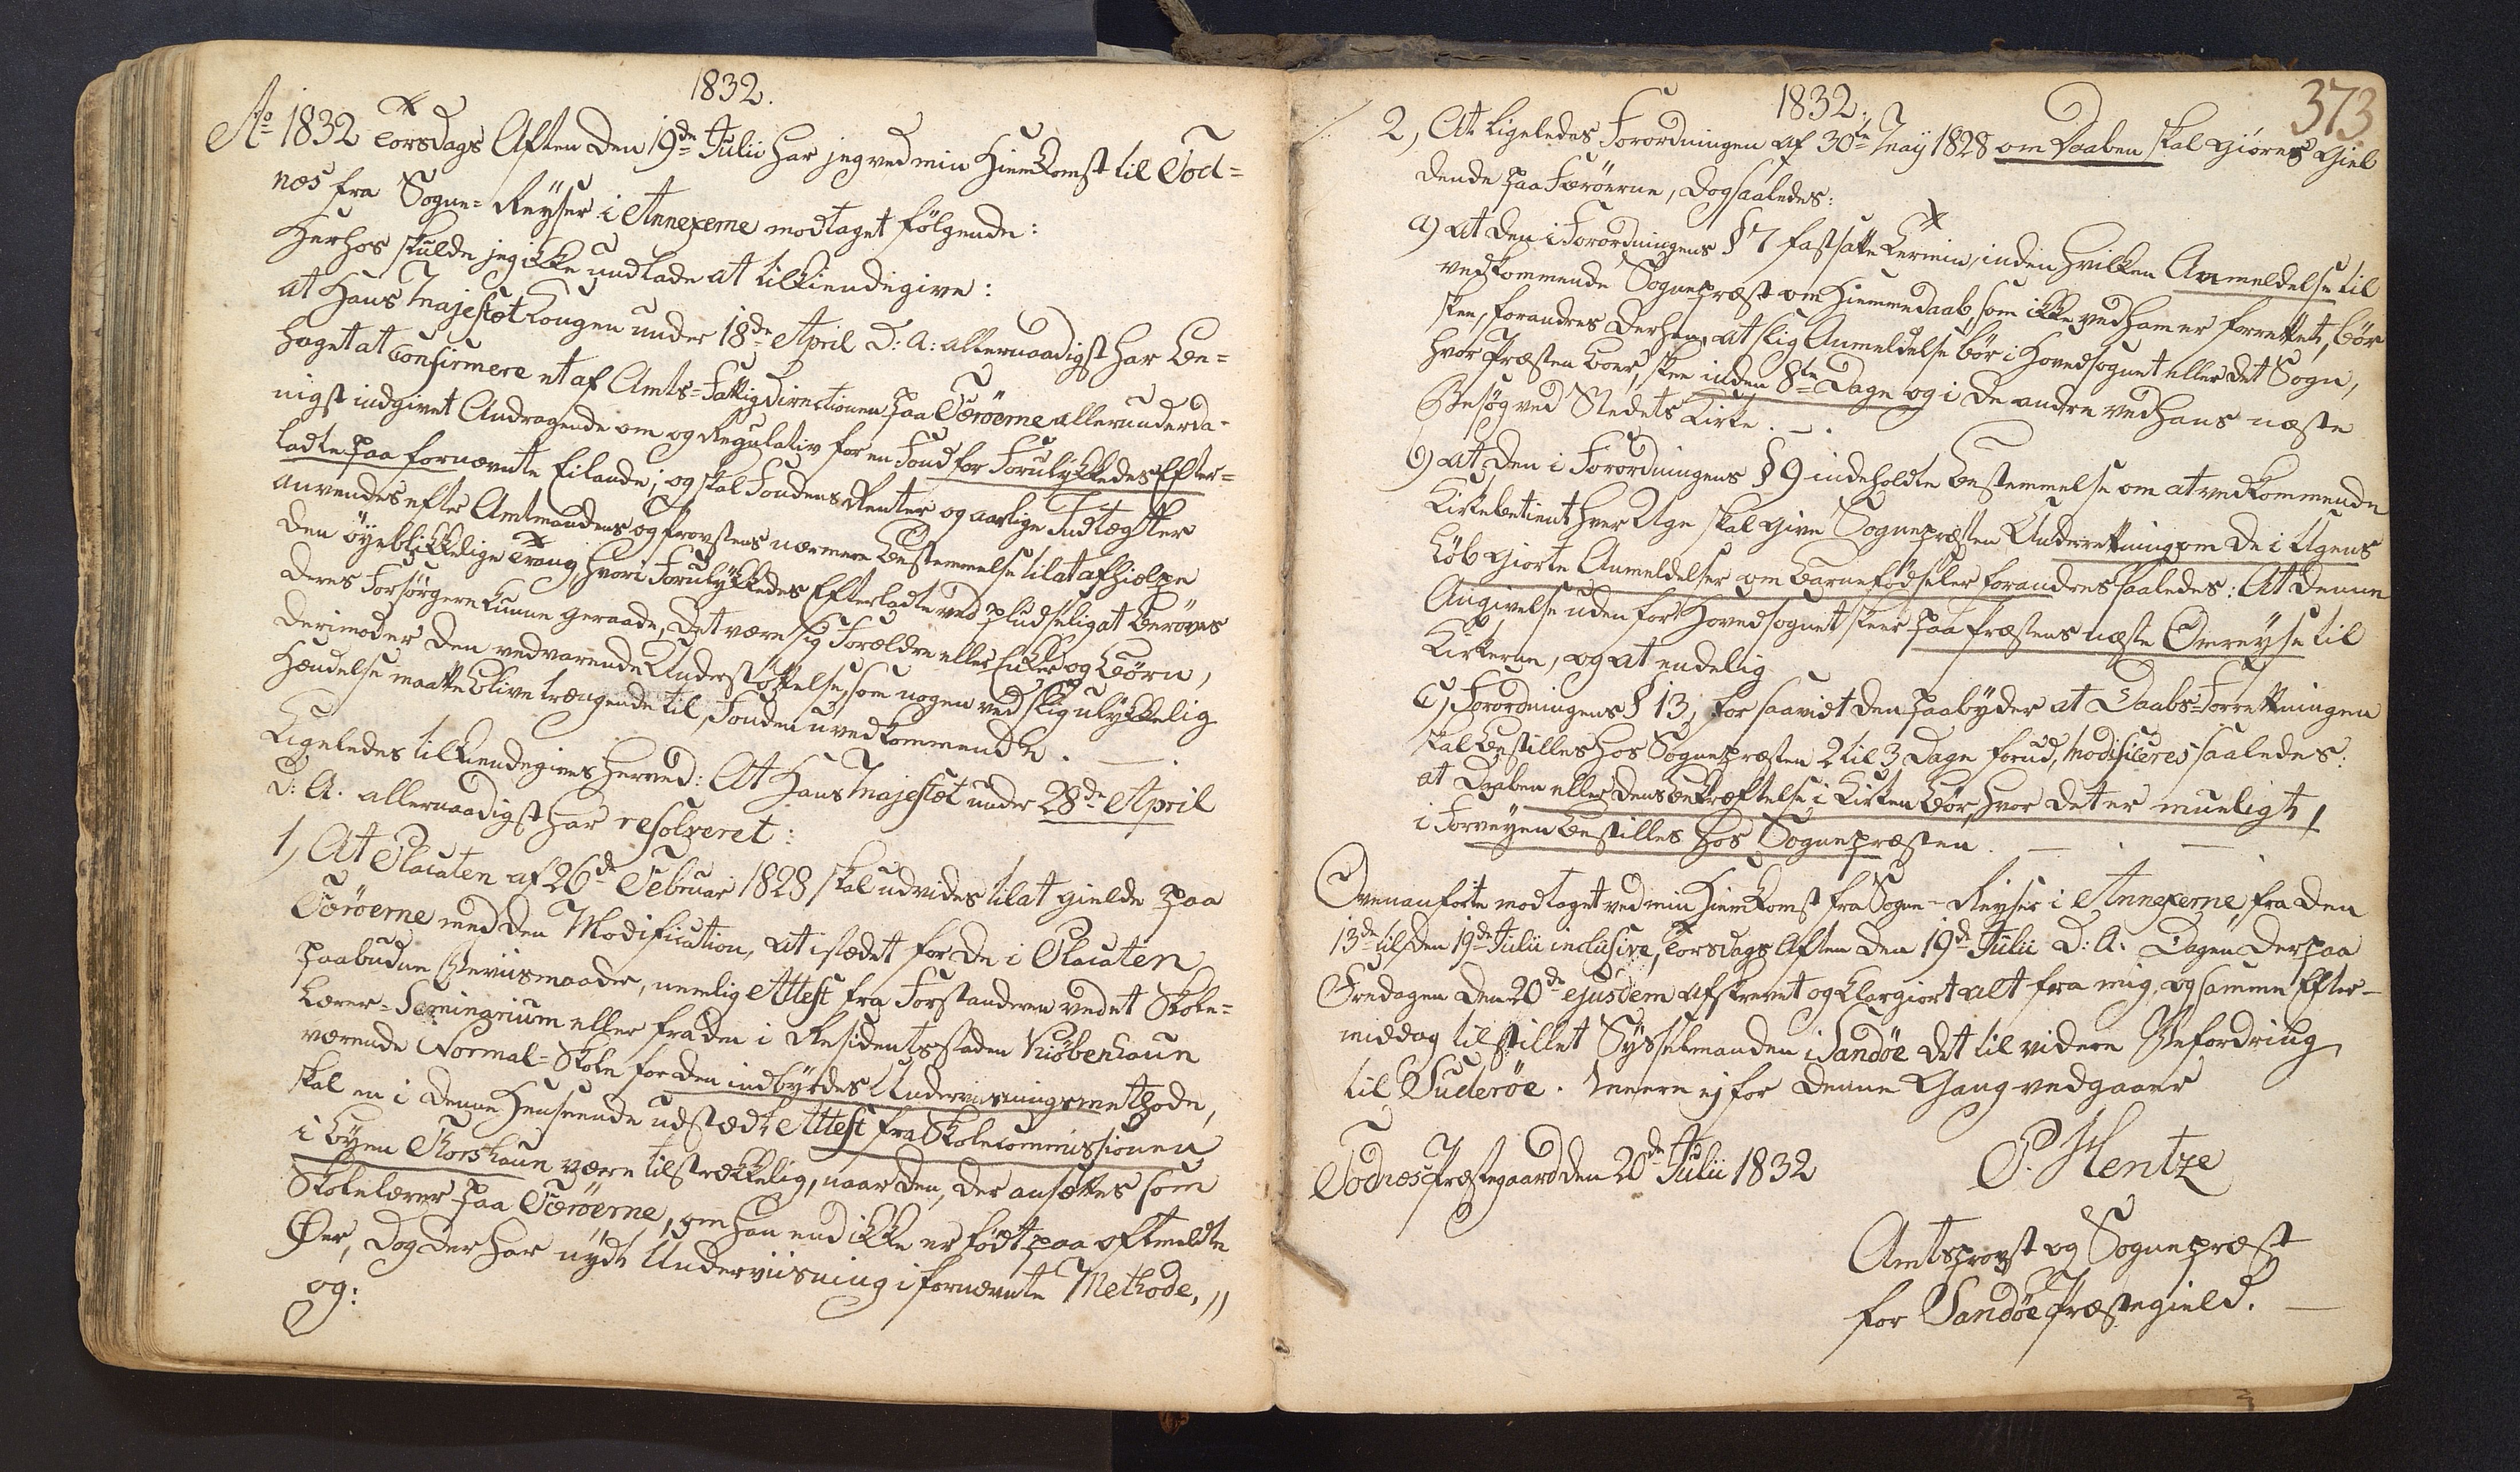 1832.
Ao 1832 Torsdags Aften den 19de Julii har jeg ved min Hiemkomst til Tod=
næs fra Sogne=Reyser i Annexerne modtaget følgende:
Herhos skulde jeg ikke undlade at tilkiendegive:
at Hans Majestæt Kongen under 18de April D: A: allernaadigst har be=
haget at Confirmere et af Amts=Fattigdirectionen paa Færöerne allerunderda-
nigst indgivet Andragende om og Regulativ for en Fond for Forulykkedes Efter=
ladte paa fornævnte Eilande; og skal Fondens Renter og aarlige Indtægtter
anvendes efter Amtmandens og Provstens nærmere Bestemmelse til at afhielpe
den öyeblikkelige Trang, hvori Forulykkedes Efterladte ved pludseligt at berøves
deres Forsörgere kunne geraade, det være sig Forældre eller Enker og Börn,
derimod er den vedvarende Understöttelse, som nogen ved slig ulykkelig
Hændelse maatte blive trængende til, Fonden uvedkommende. —.
Ligeledes tilkiendegives herved: At Hans Majestæt under 28de April
D: A. allernaadigst har resolveret:
1, At Placaten af 26de Februar 1828 skal udvides til at gielde paa
Færöerne med den Modification, at istædet for de i Placaten
paabudne Beviismaader, nemlig Attest fra Forstanderen ved et Skole=
lærer=Seminarium eller fra den i Residentsstaden Kiøbenhavn
værende Normal=Skole for den indbyrdes Underviisningsmethode,
skal en i denne Henseende udstædt Attest fra Skolecommissionen
i Byen Thorshavn være tilstrækkelig, naar den, der ansættes som
Skolelærer paa Færöerne, om han end ikke er födt paa oftmeldte
Öer, dog der har nydt Underviisning i fornævnte Methode, ,,
og:
373
1832.
2, At ligeledes Forordningen af 30te Maij 1828 om Daaben skal giöres giel
dende paa Færöerne, dog saaledes:
a) at den i Forordningens § 7 fastsatte Termin, inden hvilken Anmeldelse til
vedkommende Sognepræst om Hiemmedaab, som ikke ved ham er forrettet, bör
skee, forandres derhen, at slig Anmeldelse bör i Hovedsognet eller det Sogn,
hvor Præsten boer, skee inden 8te Dage og i de andre ved hans næste
Besøg ved Stedets Kirke. —.
b) at den i Forordningens § 9 indeholdte Bestemmelse om at vedkommende
Kirkebetient hver Uge skal give Sognepræsten Underretning om de i Ugens
Löb giorte Anmeldelser om Barnefödseler forandres saaledes: At denne
Angivelse uden for Hovedsognet skeer paa Præstens næste Omreyse til
Kirkerne, og at endelig
c) Forordningens § 13, for saavidt den paabyder at Daabs=Forretningen
skal bestilles hos Sognepræsten 2 til 3 Dage forud, Modificeres saaledes:
at Daaben eller dens Bekræftelse i Kirken bör, hvor det er mueligt,
i Forveyen bestilles hos Sognepræsten. — . —
Ovenanførte modtaget ved min Hiemkomst fra Sogne-Reyser i Annexerne, fra den
13de til den 19de Julii inclusive, Torsdags Aften den 19de Julii D: A. Dagen derpaa
Fredagen den 20de ejusdem afskrevet og klargiort alt fra mig, og samme Efter-
middag tilstillet Sysselmanden i Sandöe det til videre Befordring
til Suderöe. Meere ej for denne Gang vedgaaer
Todnæs Præstegaard den 20de Julii 1832
P. Hentze
Amtsprovst og Sognepræst
for Sandöe Præstegield. —